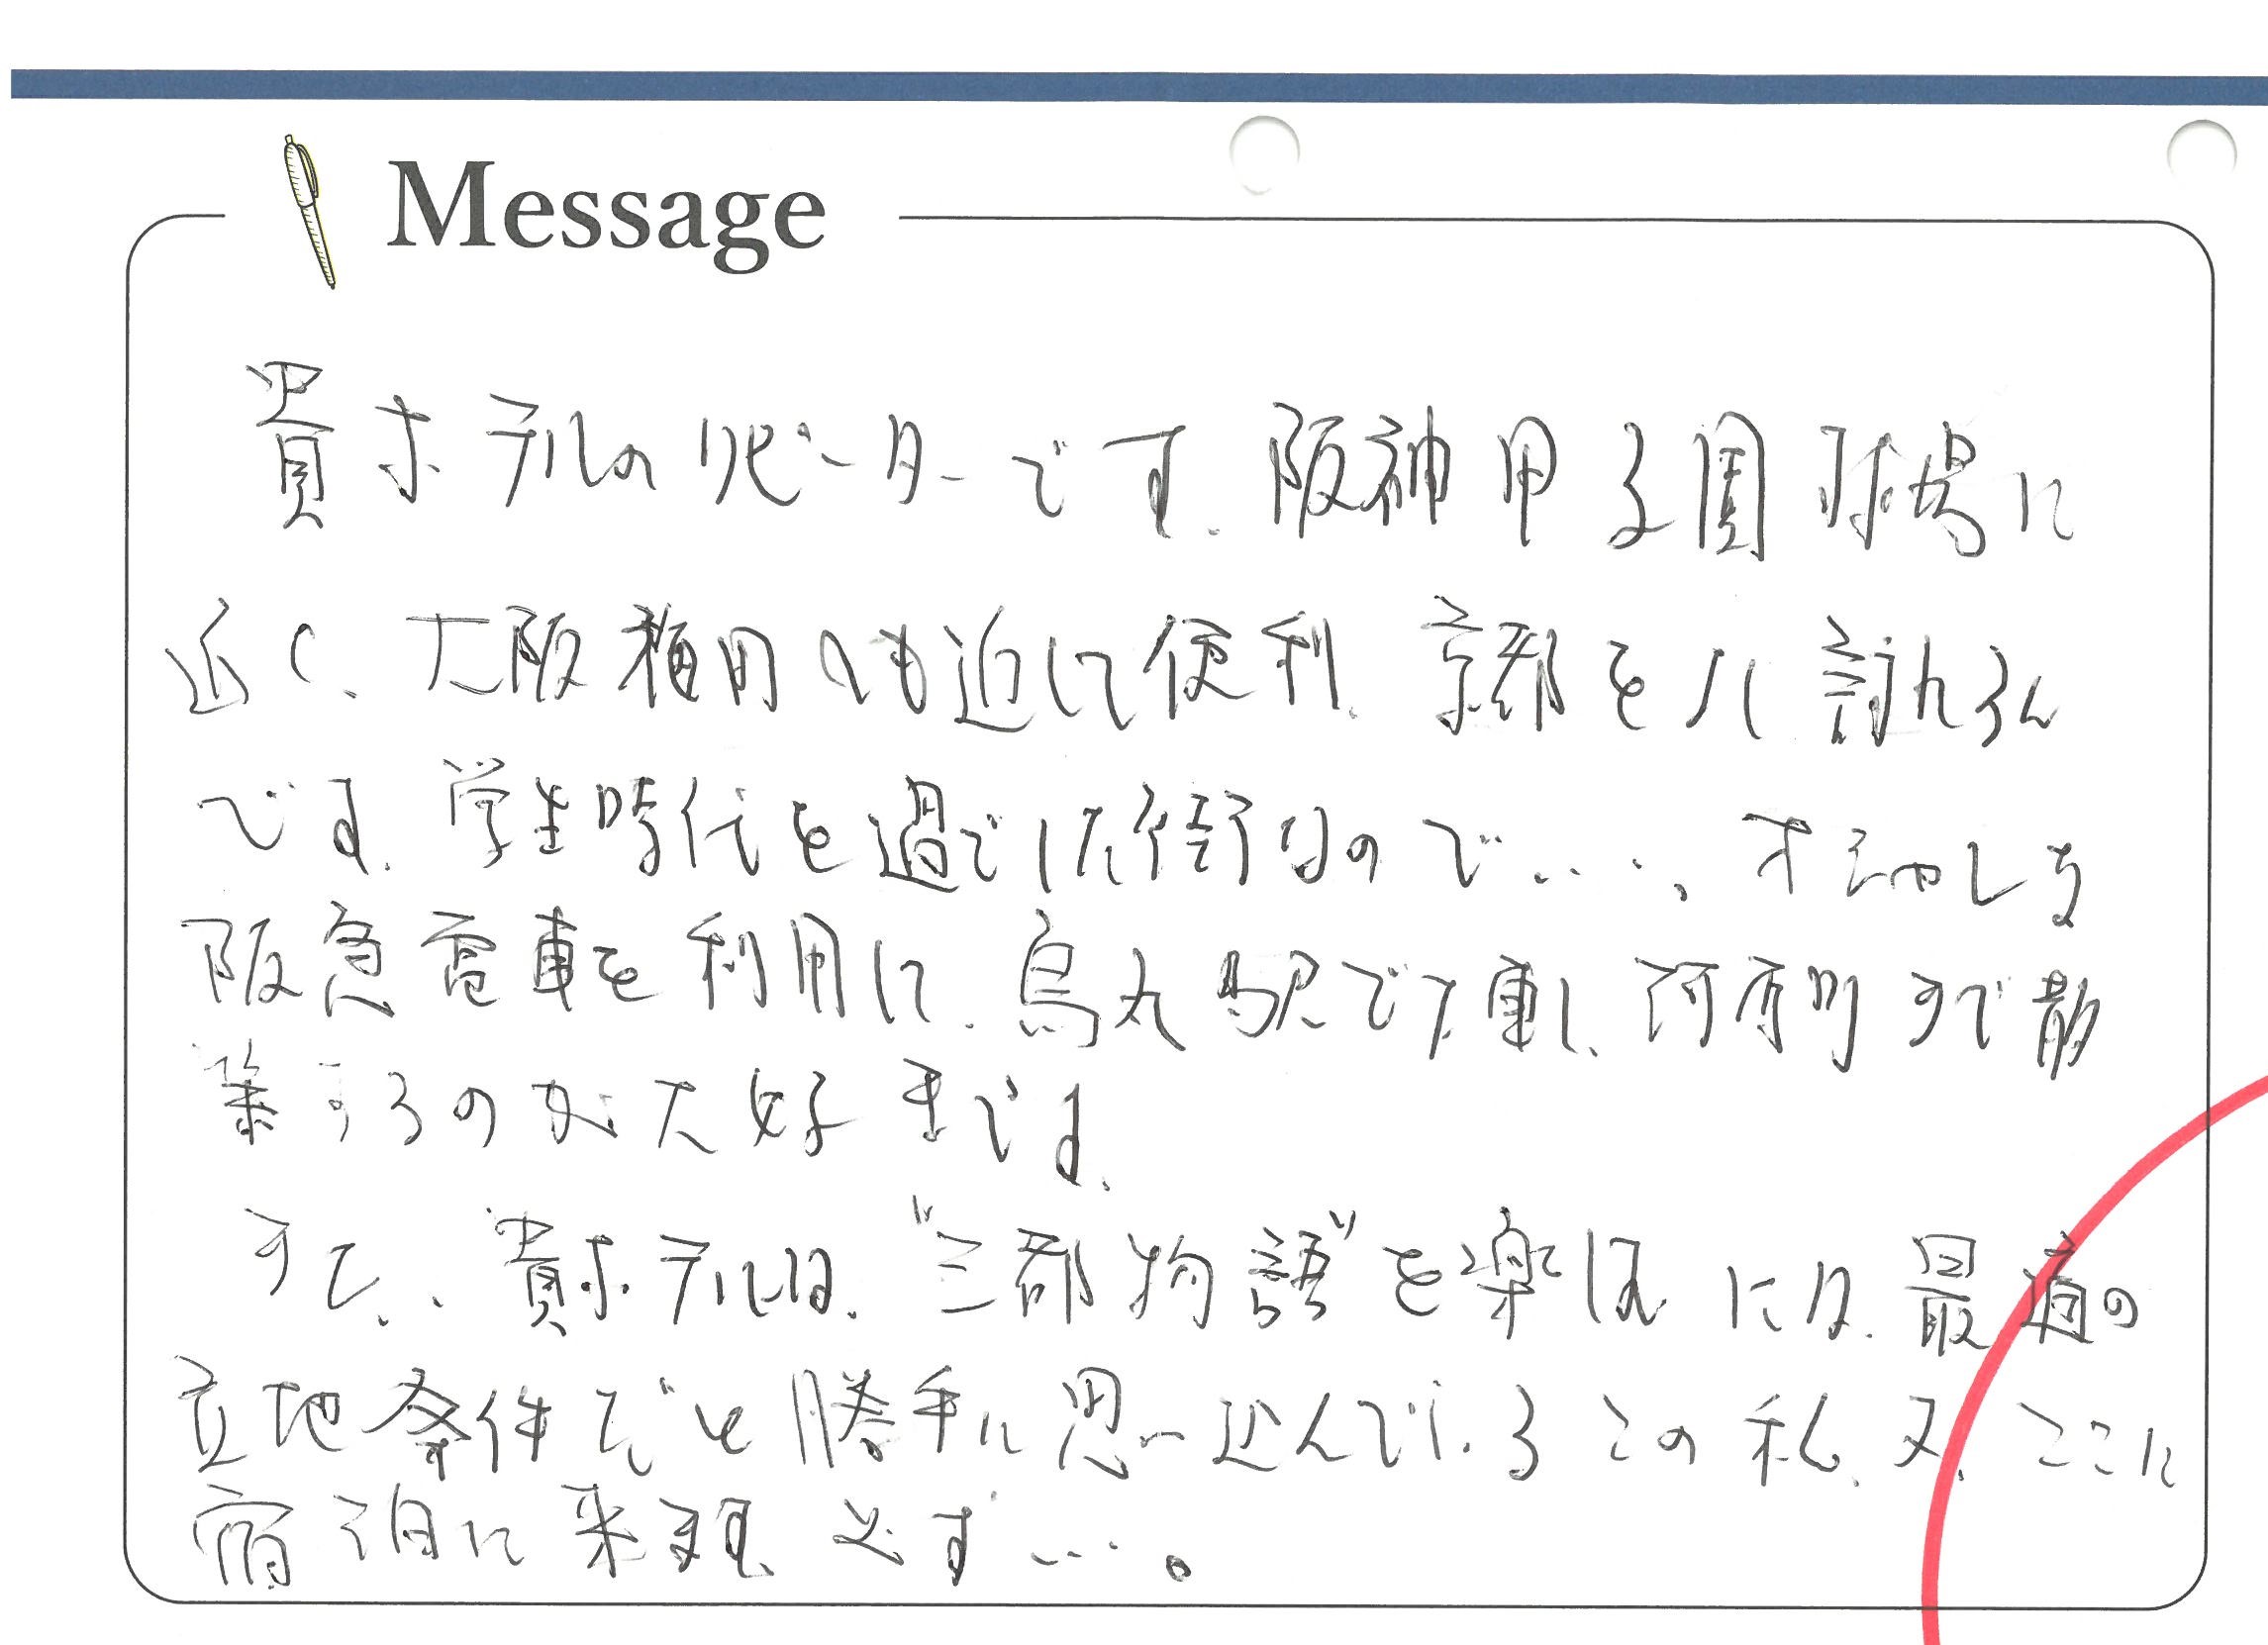 Message
貴ホテルのリピーターです。阪神甲子園球場に
近く、大阪梅田へも近しで便利、京都をも訪れるん
です。学生時代を過ごした街なので…、オシャレな
阪急電車を利用に、烏丸駅で下車し、河原町まで散
策するのが大好きです。
さて、、貴ホテルは、"三都物語"を楽しむには、最適の
立地条件でと勝手に思い込んでいるこの私、又、ここに
宿泊に来ます。必ず…。